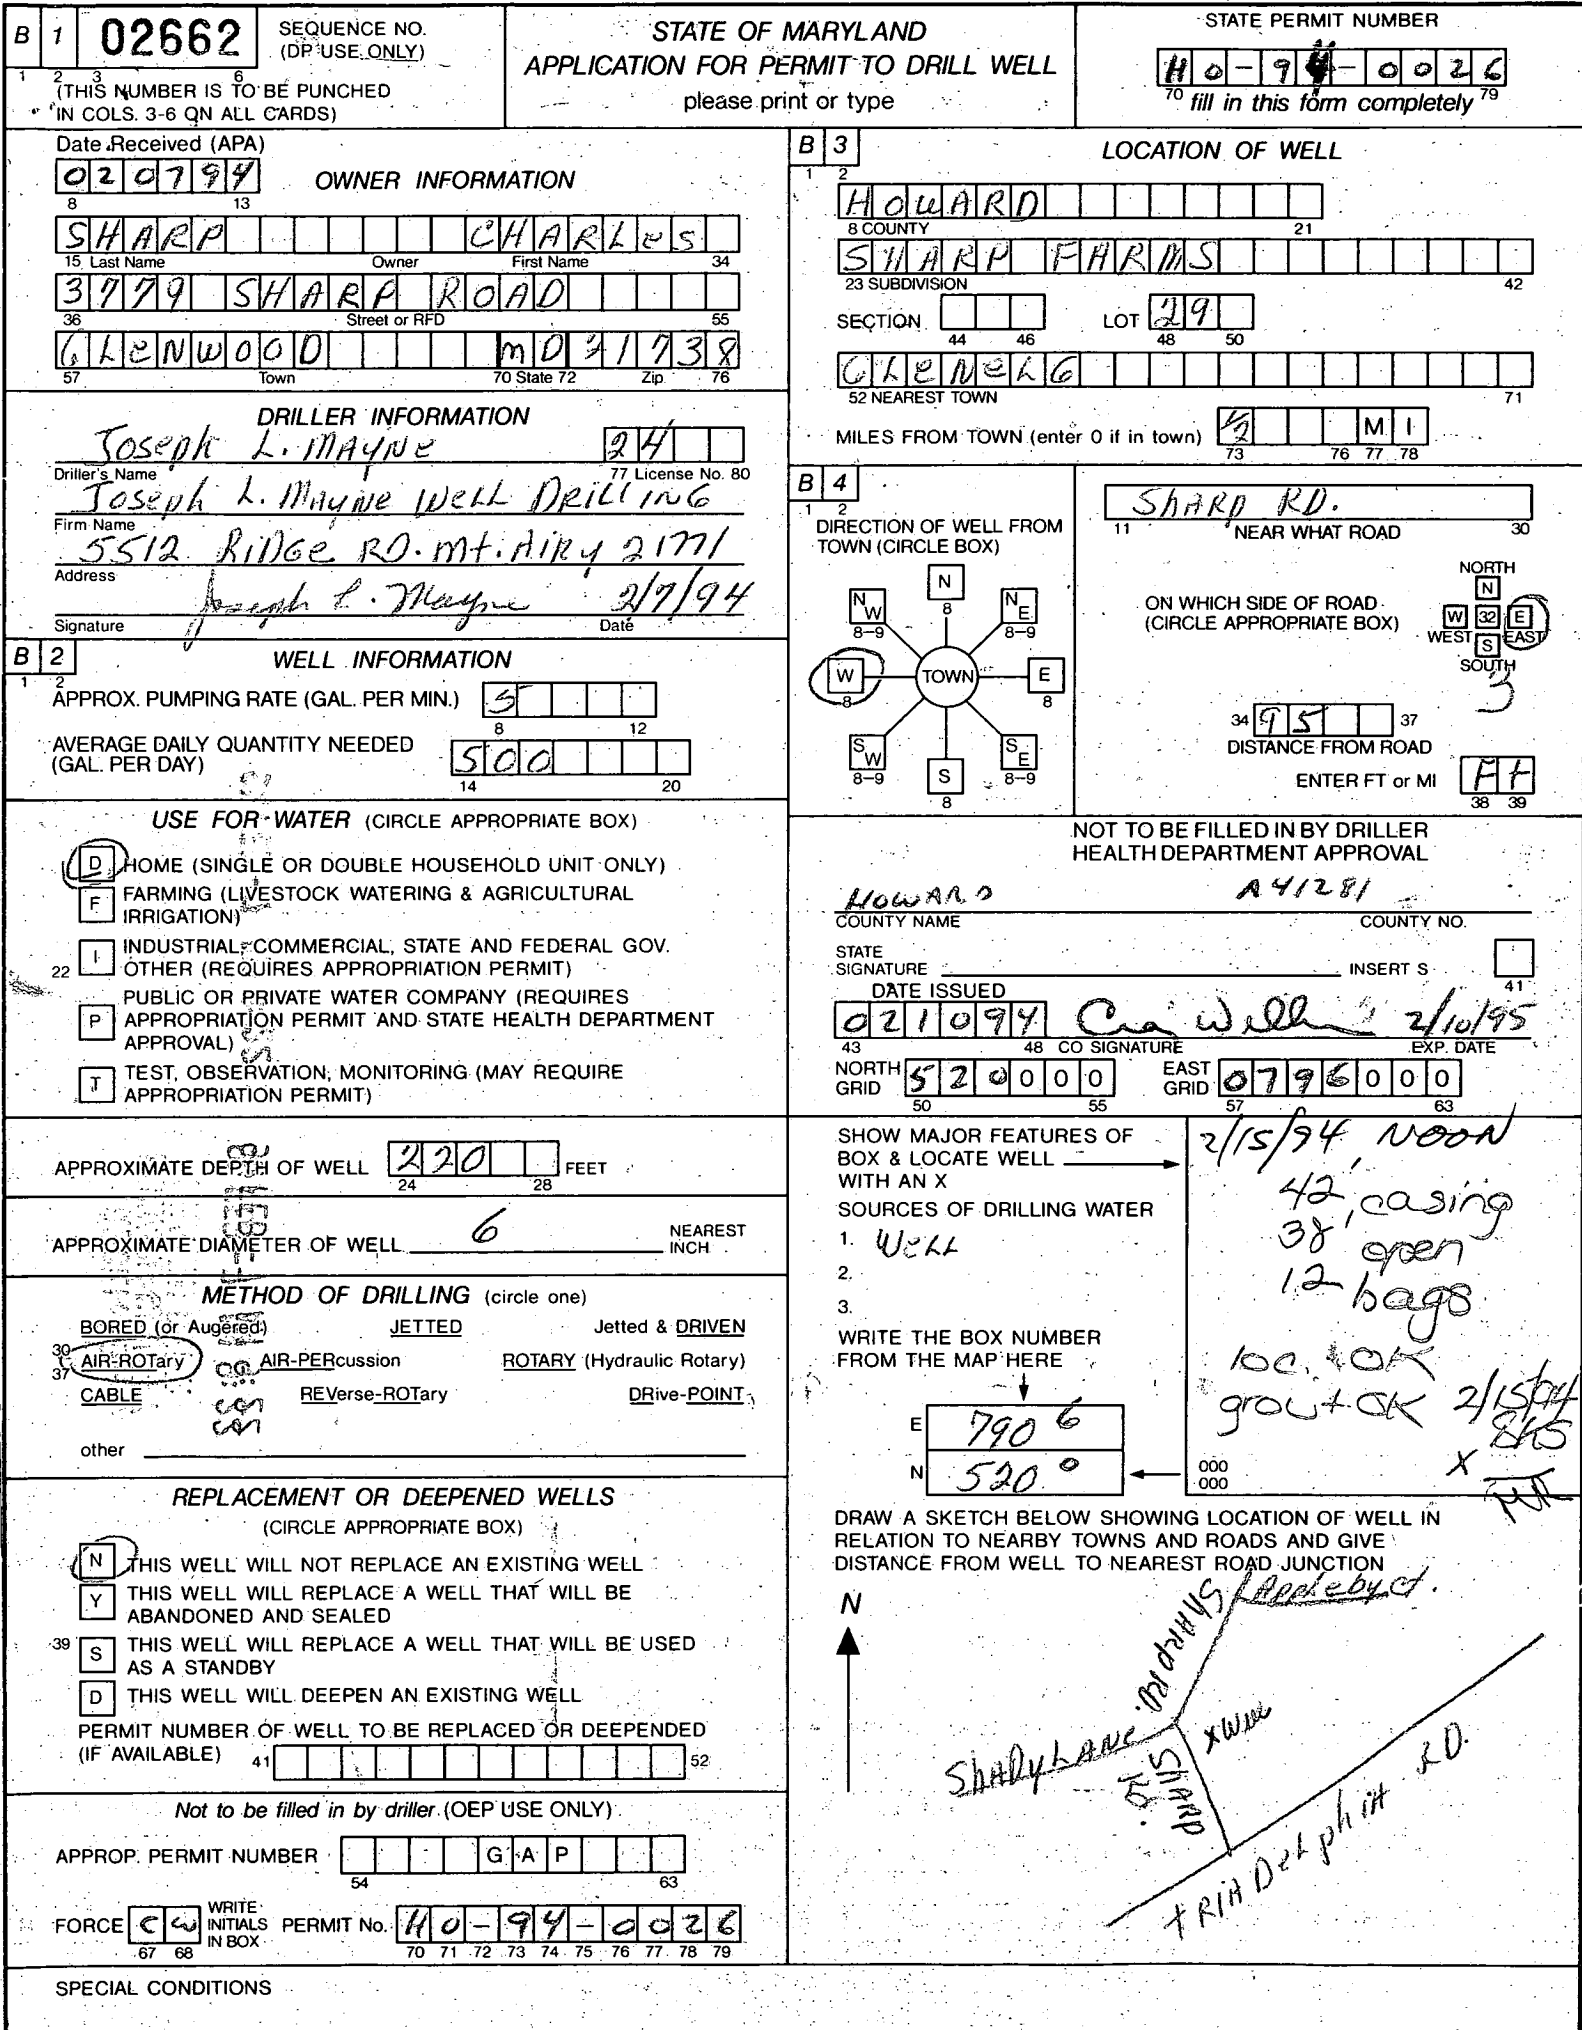 B 1 02662 SEQUENCE NO.
(DP USE ONLY)
1 2 3 6
(THIS NUMBER IS TO BE PUNCHED
IN COLS. 3-6 ON ALL CARDS)
STATE OF MARYLAND
APPLICATION FOR PERMIT TO DRILL WELL
please print or type
STATE PERMIT NUMBER
HO-94-0026
70 fill in this form completely 79
Date Received (APA)
020794
8 13
OWNER INFORMATION
SHARP CHARLes
15 Last Name Owner First Name 34
3779 SHARP ROAD
36 Street or RFD 55
GLeNWOOD mD 21738
57 Town 70 State 72 Zip 76
DRILLER INFORMATION
Joseph L. MAyNe 24
Driller's Name 77 License No. 80
Joseph L. MAyNe WeLL DRiLLING
Firm Name
5512 RiDGe RD. mt. AiRy 21771
Address
Joseph L. Mayne 2/7/94
Signature Date
B 2 WELL INFORMATION
1 2
APPROX. PUMPING RATE (GAL. PER MIN.) 5
8 12
AVERAGE DAILY QUANTITY NEEDED
(GAL. PER DAY) 500
14 20
USE FOR WATER (CIRCLE APPROPRIATE BOX)
D HOME (SINGLE OR DOUBLE HOUSEHOLD UNIT ONLY)
F FARMING (LIVESTOCK WATERING & AGRICULTURAL
IRRIGATION)
22 I INDUSTRIAL, COMMERCIAL, STATE AND FEDERAL GOV.
OTHER (REQUIRES APPROPRIATION PERMIT)
P PUBLIC OR PRIVATE WATER COMPANY (REQUIRES
APPROPRIATION PERMIT AND STATE HEALTH DEPARTMENT
APPROVAL)
T TEST, OBSERVATION, MONITORING (MAY REQUIRE
APPROPRIATION PERMIT)
APPROXIMATE DEPTH OF WELL 220 FEET
24 28
APPROXIMATE DIAMETER OF WELL 6 NEAREST
INCH
METHOD OF DRILLING (circle one)
BORED (or Augered) JETTED Jetted & DRIVEN
30
37 AIR-ROTary AIR-PERcussion ROTARY (Hydraulic Rotary)
CABLE REVerse-ROTary DRive-POINT
other
REPLACEMENT OR DEEPENED WELLS
(CIRCLE APPROPRIATE BOX)
N THIS WELL WILL NOT REPLACE AN EXISTING WELL
Y THIS WELL WILL REPLACE A WELL THAT WILL BE
ABANDONED AND SEALED
39 S THIS WELL WILL REPLACE A WELL THAT WILL BE USED
AS A STANDBY
D THIS WELL WILL DEEPEN AN EXISTING WELL
PERMIT NUMBER OF WELL TO BE REPLACED OR DEEPENDED
(IF AVAILABLE) 41 52
Not to be filled in by driller (OEP USE ONLY)
APPROP. PERMIT NUMBER GAP
54 63
FORCE CW WRITE INITIALS IN BOX PERMIT No. HO-94-0026
67 68 70 71 72 73 74 75 76 77 78 79
SPECIAL CONDITIONS
B 3 LOCATION OF WELL
1 2
HOWARD
8 COUNTY 21
SHARP FARMS
23 SUBDIVISION 42
SECTION LOT 29
44 46 48 50
GLeNeLG
52 NEAREST TOWN 71
MILES FROM TOWN (enter 0 if in town) 1/2 MI
73 76 77 78
B 4
1 2
DIRECTION OF WELL FROM
TOWN (CIRCLE BOX)
N
8
NW NE
8-9 8-9
W TOWN E
8 8
SW SE
8-9 8-9
S
8
SHARP RD.
11 NEAR WHAT ROAD 30
ON WHICH SIDE OF ROAD
(CIRCLE APPROPRIATE BOX)
NORTH
N
W 32 E
WEST EAST
S
SOUTH
3
34 95 37
DISTANCE FROM ROAD
ENTER FT or MI Ft
38 39
NOT TO BE FILLED IN BY DRILLER
HEALTH DEPARTMENT APPROVAL
HOWARD A41281
COUNTY NAME COUNTY NO.
STATE
SIGNATURE INSERT S
41
DATE ISSUED
021094 2/10/95
43 48 CO SIGNATURE EXP. DATE
NORTH GRID 520000 EAST GRID 0796000
50 55 57 63
SHOW MAJOR FEATURES OF
BOX & LOCATE WELL
WITH AN X
SOURCES OF DRILLING WATER
1. WeLL
2.
3.
WRITE THE BOX NUMBER
FROM THE MAP HERE
E 790 6
N 520 0
000
000
2/15/94, NOON
42' casing
38' open
12 bags
loc. OK
grout OK 2/15/94
X
DRAW A SKETCH BELOW SHOWING LOCATION OF WELL IN
RELATION TO NEARBY TOWNS AND ROADS AND GIVE
DISTANCE FROM WELL TO NEAREST ROAD JUNCTION
N
Appleby ct.
SHARP RD.
ShADy LANe
X Well
SHARP RD.
TRiADeLphiA RD.